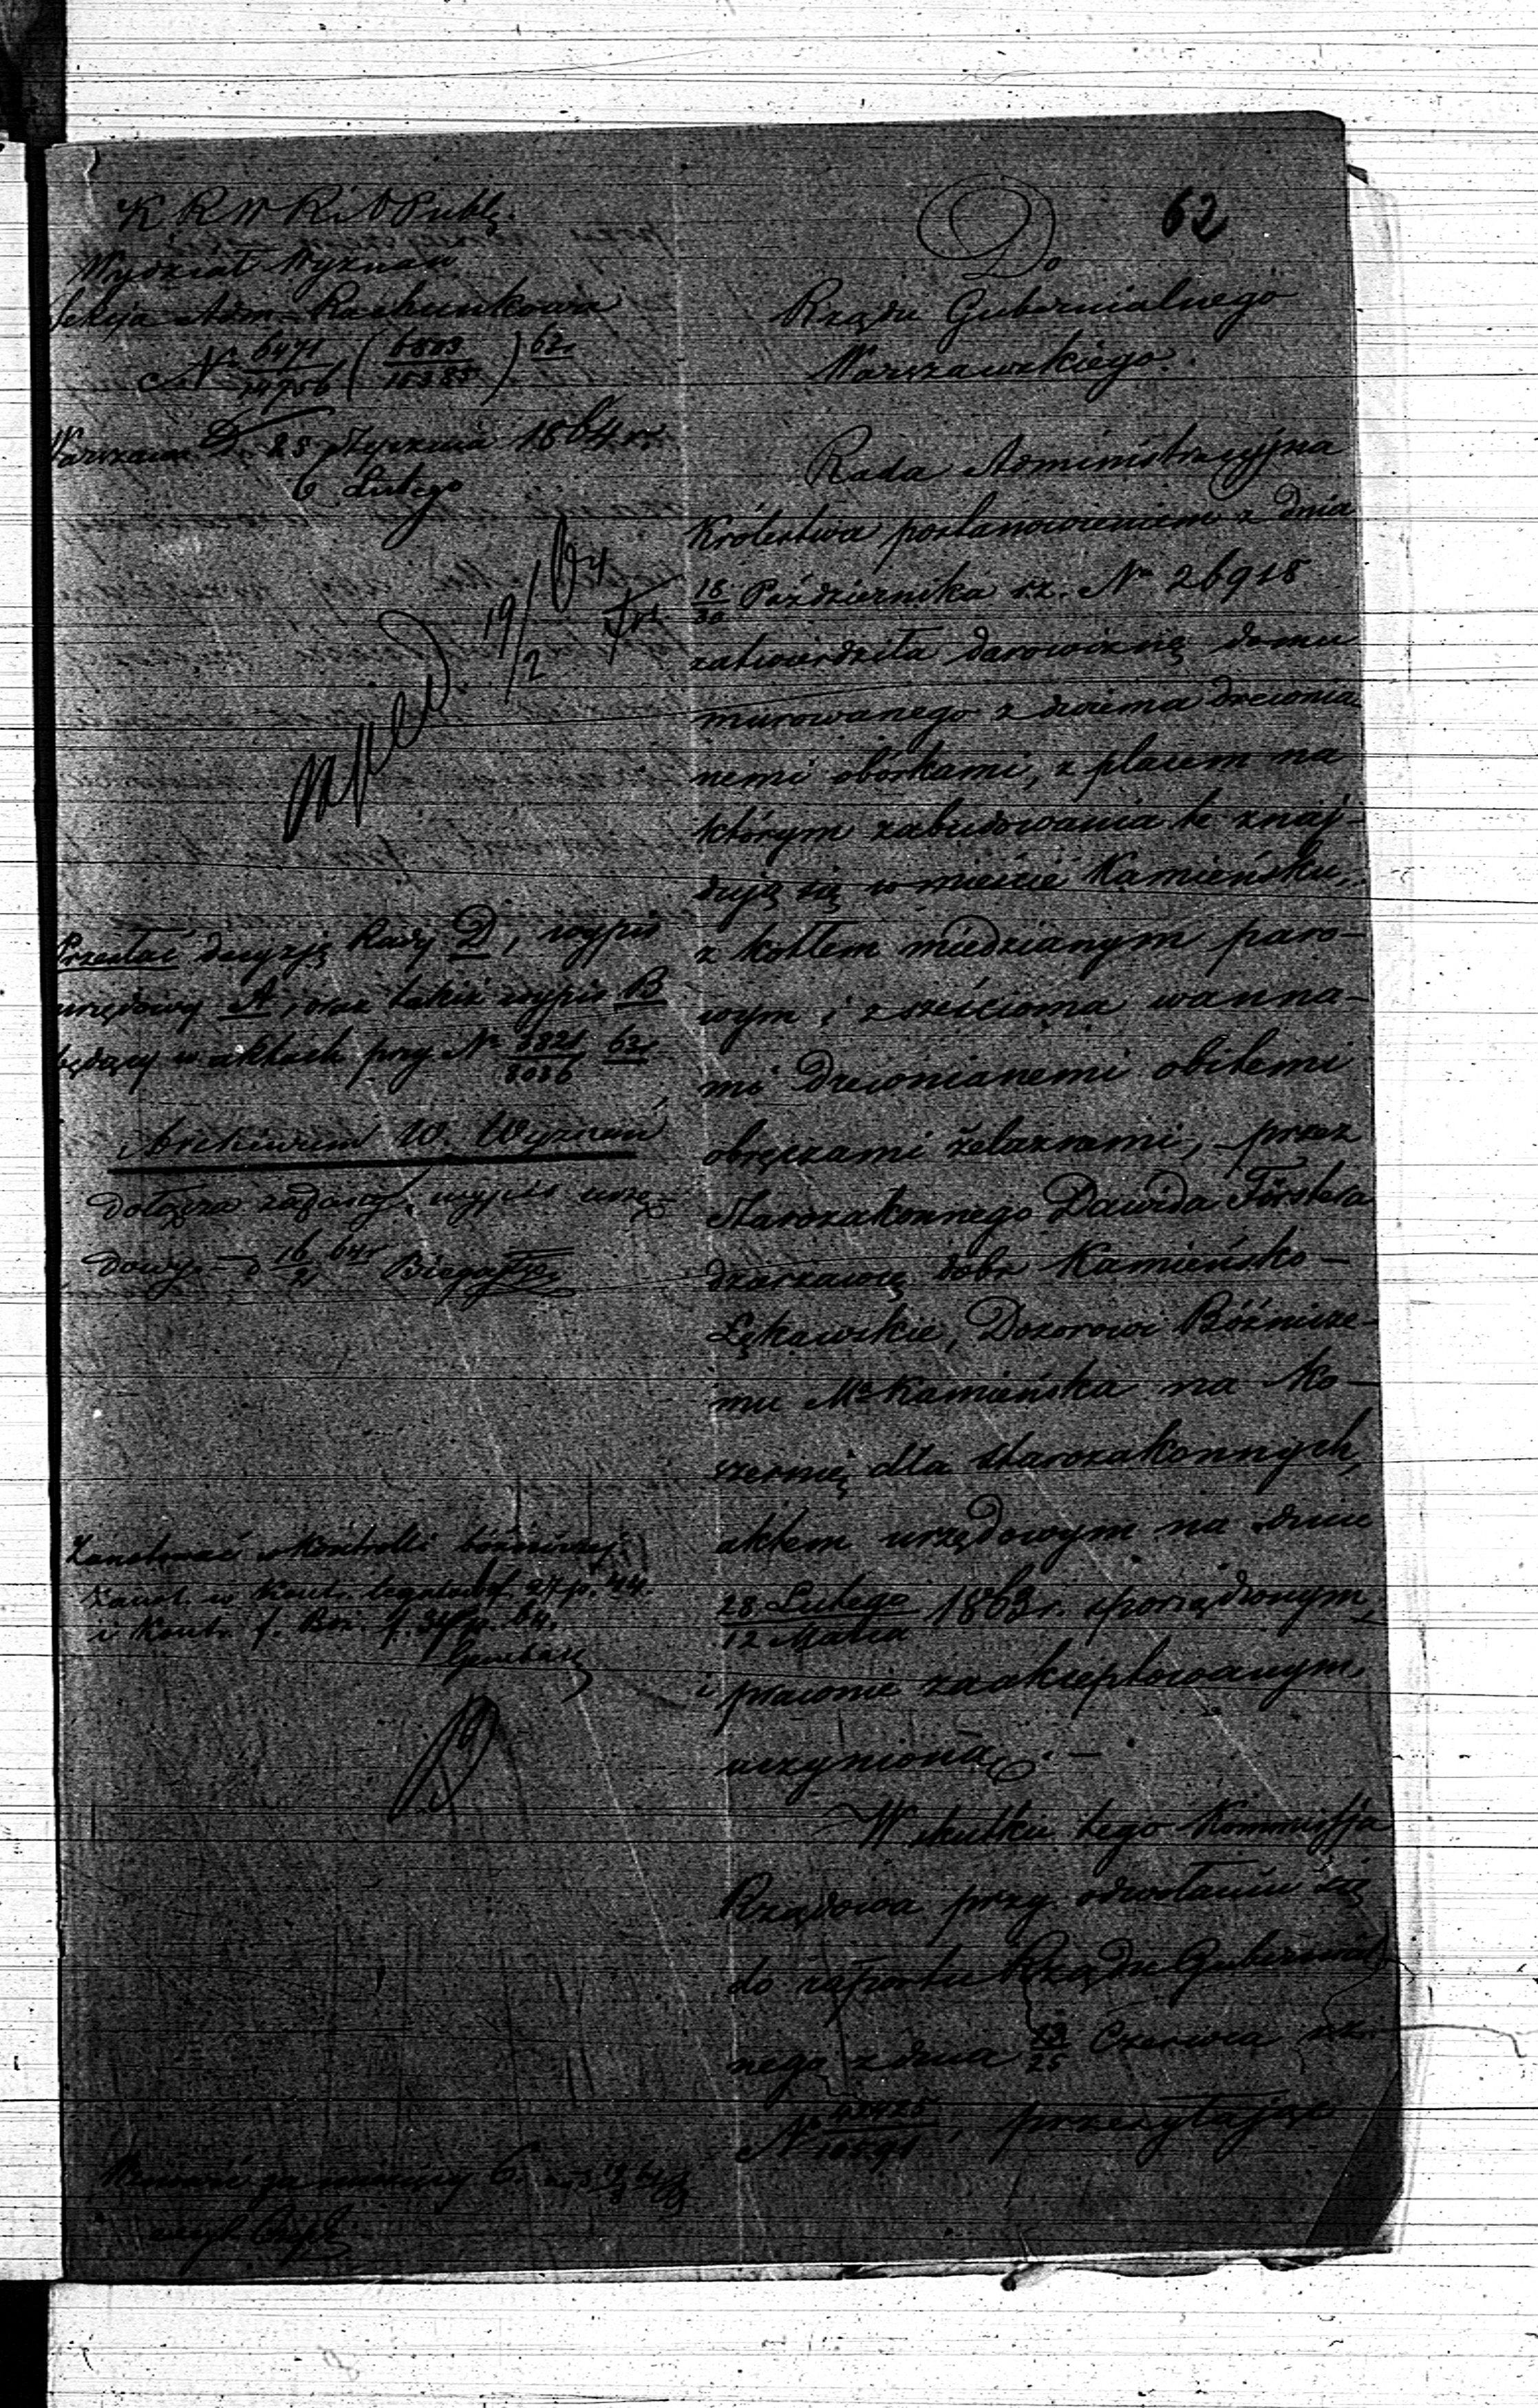 62
K R W R i O Publ.
Wydział Wyznań
Sekcja Adm-Rachunkowa
N 6471/14756 (6803/15385) 62
Warszawa D. 25 Stycznia 1864 r.
6 Lutego
19/2 64
Przesłać decyzję Rady D, wypis
urzędowy A, oraz takiż wypis B
będący w aktach przy N 3821/8036 62
Archiwum W. Wyznań
dołącza żądany wypis urzę-
dowy
Zanotować w Kontrolli bóżniczej
Zanot. w Kont. legatów f. 27 p. 44.
i Kont. f. Boż. f.
Do
Rządu Gubernialnego
Warszawskiego.
Rada Administracyjna
Królestwa postanowieniem z dnia
18/30 Października r.z. N 26918
zatwierdziła darowiznę domu
murowanego z dwiema drewnia-
nemi obórkami, z placem na
którym zabudowania te znaj-
dują się w mieście Kamieńsku,
z kotłem miedzianym paro-
wym i z sześcioma wanna-
mi drewnianemi obitemi
obręczami żelaznemi, przez
Starozakonnego Dawida Förstera
dzierżawcę dóbr Kamieńsko-
Łękawskie, Dozorowi Bóżnicze-
mu Mta Kamieńska na ko-
szernię dla starozakonnych,
aktem urzędowym na dniu
28 Lutego/12 Marca 1863 r. sporządzonym
i prawnie zaakceptowanym,
uczynioną. —
W skutku tego Kommissja
Rządowa przy odwołaniu się
do raportu Rządu Gubernial
nego z dnia 13/25 Czerwca r.z.
N , przesyłając